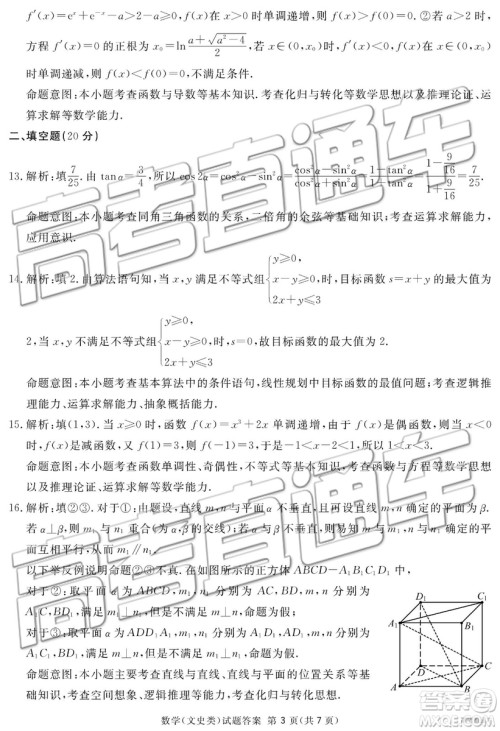 f′(x)=eˣ+e⁻ˣ-a>2-a>0,则 f(x)在 x>0 时单调递增,则 f(x)>f(0)=0.②若 a>2 时,
方程 f′(x)=0 的正根为 x₀=ln(a+√(a²-4))/2,若 x∈(0,x₀)时,f′(x)<0,则 f(x)在 x∈(0,x₀)
时单调递减,则 f(x)<f(0)=0,不满足条件.
命题意图:本小题考查函数与导数等基本知识.考查化归与转化等数学思想以及推理论证、运
算求解等数学能力.
二、填空题(20 分)
13.解析:填7/25.由 tanα=3/4,所以 cos2α=cos²α-sin²α=(cos²α-sin²α)/(cos²α+sin²α)=(1-tan²α)/(1+tan²α)=(1-9/16)/(1+9/16)=7/25.
命题意图:本小题考查同角三角函数的关系,二倍角的余弦等基础知识;考查运算求解能力,
应用意识.
14.解析:填 2.由算法语句知,当 x,y 满足不等式组{y⩾0, x-y⩾0, 2x+y⩽3 时,目标函数 s=x+y 的最大值为
2,当 x,y 不满足不等式组{y⩾0, x-y⩾0, 2x+y⩽3 时,s=0,故目标函数的最大值为 2.
命题意图:本小题考查基本算法中的条件语句,线性规划目标函数的最值问题;考查逻辑推
理能力、运算求解能力、抽象概括能力.
15.解析:填(1,3).当 x⩾0 时,函数 f(x)=x³+2x 单调递增,由于 f(x)是偶函数,因此当 x<0
时,f(x)是减函数,又 f(1)=3,则 f(-1)=3,于是-1<x-2<1,所以 1<x<3.
命题意图:本小题考查函数单调性、奇偶性,不等式等基础知识.考查函数与方程等数学思想
以及推理论证、运算求解等数学能力.
16.解析:填②③.对于①:由题设,直线 m,n 与平面 α 不垂直,且可设直线 m,n 确定的平面为 β.
若 α⊥β,则 m₁ 与 n₁ 重合(为 α,β 的交线);若 α 与 β 不垂直,则易知 m₁ 与 n₁ 确定的平
面与 α 垂直,从而 m₁∥n₁.
以下举反例说明命题②③不真.在如图所示的正方体 ABCD-A₁B₁C₁D₁ 中:
对于②:取平面 α 为平面 ABCD,m,n 分别为 AC,BD₁,m₁,n₁ 分别为
A₁C₁,BD₁,满足 m₁⊥n₁,但是 m⊥n 不成立,命题为假;
对于③:取平面 α 为平面 ADD₁A₁,m,n 分别为 AC₁,BD₁,m₁,n₁ 分别为
A₁C₁,BD₁,满足 m⊥n,但是 m₁⊥n₁ 不成立,命题为假.
命题意图:本小题主要考查直线与直线、直线与平面的位置关系等基础知识.考查
空间想象、逻辑推理等数学能力,考查化归与转化思想.
数学(文史类)试题答案 第 3 页(共 7 页)
高考直通车
D₁
C₁
A₁
B₁
D
C
A
B